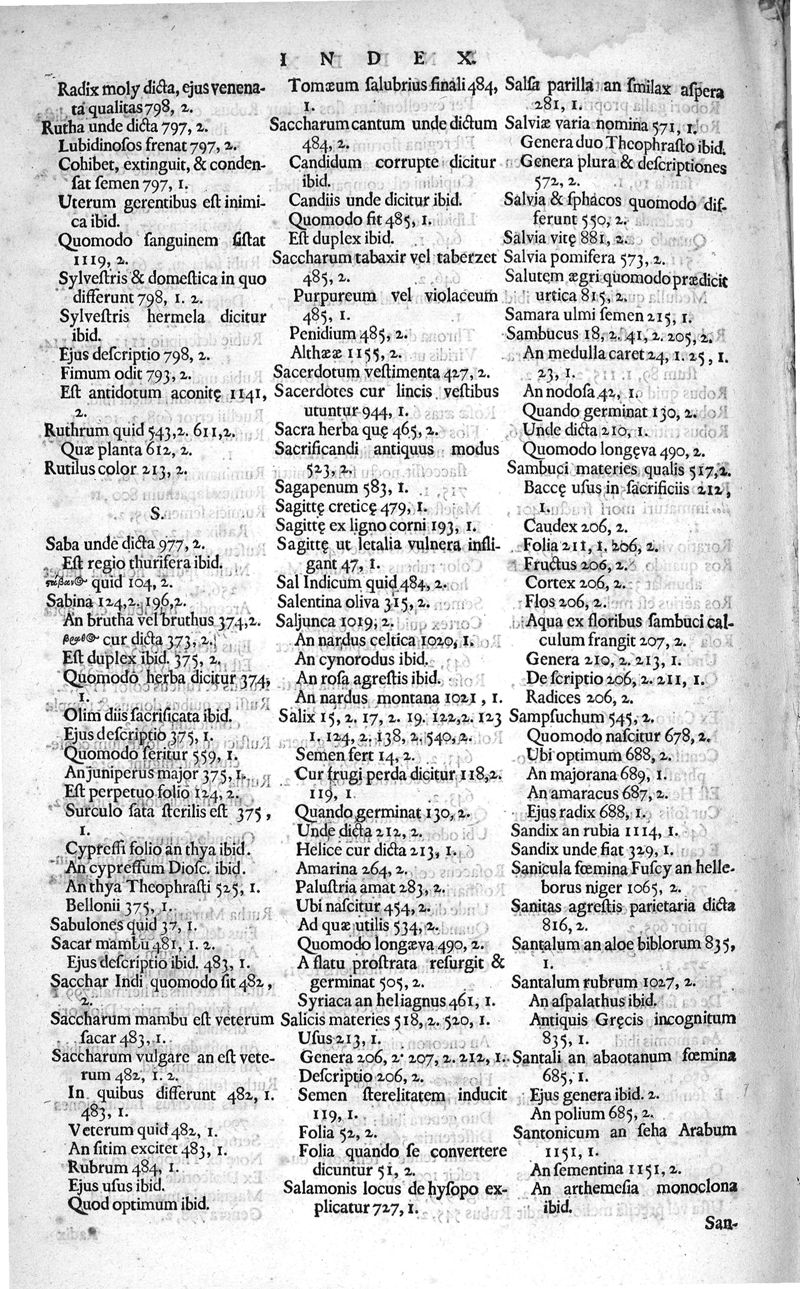 INDEX.
Radix moly dicta, ejus venena-
ta qualitas 798, 2.
Rutha unde dicta 797, 2.
Lubidinosos frenat 797, 2.
Cohibet, extinguit, & conden-
sat semen 797, 1.
Uterum gerentibus est inimi-
ca ibid.
Quomodo sanguinem sistat
1119, 2.
Sylvestris & domestica in quo
differunt 798, 1. 2.
Sylvestris hermela dicitur
ibid.
Ejus descriptio 798, 2.
Fimum odit 793, 2.
Est antidotum aconitę 1141,
2.
Ruthrum quid 543, 2. 611, 2.
Quæ planta 612, 2.
Rutilus color 213, 2.
S.
Saba unde dicta 977, 2.
Est regio thurifera ibid.
quid 104, 2.
Sabina 124, 2. 196, 2.
An brutha vel bruthus 374, 2.
cur dicta 373, 2.
Est duplex ibid. 375, 2.
Quomodo herba dicitur 374,
1.
Olim diis sacrificata ibid.
Ejus descriptio 375, 1.
Quomodo seritur 559, 1.
An juniperus major 375, 1.
Est perpetuo folio 124, 2.
Surculo sata sterilis est 375,
1.
Cypressi folio an thya ibid.
An cypressum Diosc. ibid.
An thya Theophrasti 525, 1.
Bellonii 375, 1.
Sabulones quid 37, 1.
Sacar mambu 481, 1. 2.
Ejus descriptio ibid. 483, 1.
Sacchar Indi quomodo sit 482,
2.
Saccharum mambu est veterum
sacar 483, 1.
Saccharum vulgare an est vete-
rum 482, 1. 2.
In quibus differunt 482, 1.
483, 1.
Veterum quid 482, 1.
An sitim excitet 483, 1.
Rubrum 484, 1.
Ejus usus ibid.
Quod optimum ibid.
Tomæum salubrius finali 484,
1.
Saccharum cantum unde dictum
484, 2.
Candidum corrupte dicitur
ibid.
Candiis unde dicitur ibid.
Quomodo fit 485, 1.
Est duplex ibid.
Saccharum tabaxir vel taberzet
485, 2.
Purpureum vel violaceum
485, 1.
Penidium 485, 2.
Althææ 1155, 2.
Sacerdotum vestimenta 427, 2.
Sacerdotes cur lincis vestibus
utuntur 944, 1.
Sacra herba quę 465, 2.
Sacrificandi antiquus modus
523, 2.
Sagapenum 583, 1.
Sagittę creticę 479, 1.
Sagittę ex ligno corni 193, 1.
Sagittę ut letalia vulnera infli-
gant 47, 1.
Sal Indicum quid 484, 2.
Salentina oliva 315, 2.
Saljunca 1019, 2.
An nardus celtica 1020, 1.
An cynorodus ibid.
An rosa agrestis ibid.
An nardus montana 1021, 1.
Salix 15, 2. 17, 2. 19. 122, 2. 123
1. 124, 2. 138, 2. 540, 2.
Semen fert 14, 2.
Cur frugi perda dicitur 118, 2.
119, 1.
Quando germinat 130, 2.
Unde dicta 212, 2.
Helice cur dicta 213, 1.
Amarina 264, 2.
Palustria amat 283, 2.
Ubi nascitur 454, 2.
Ad quæ utilis 534, 2.
Quomodo longæva 490, 2.
A flatu prostrata resurgit &
germinat 505, 2.
Syriaca an heliagnus 461, 1.
Salicis materies 518, 2. 520, 1.
Usus 213, 1.
Genera 206, 2. 207, 2. 212, 1.
Descriptio 206, 2.
Semen sterelitatem inducit
119, 1.
Folia 52, 2.
Folia quando se convertere
dicuntur 51, 2.
Salamonis locus de hysopo ex-
plicatur 727, 1.
Salsa parilla an smilax aspera
281, 1.
Salviæ varia nomina 571, 1.
Genera duo Theophrasto ibid.
Genera plura & descriptiones
572, 2.
Salvia & sphacos quomodo dif-
ferunt 550, 2.
Salvia vitę 881, 2.
Salvia pomifera 573, 2.
Salutem ægri quomodo prædicit
urtica 815, 2.
Samara ulmi semen 215, 1.
Sambucus 18, 2. 41, 2. 205, 2.
An medulla caret 24, 1. 25, 1.
23, 1.
An nodosa 42, 1.
Quando germinat 130, 2.
Unde dicta 210, 1.
Quomodo longęva 490, 2.
Sambuci materies qualis 517, 2.
Baccę usus in sacrificiis 212,
1.
Caudex 206, 2.
Folia 211, 1. 206, 2.
Fructus 206, 2.
Cortex 206, 2.
Flos 206, 2.
Aqua ex floribus sambuci cal-
culum frangit 207, 2.
Genera 210, 2. 213, 1.
Descriptio 206, 2. 211, 1.
Radices 206, 2.
Sampsuchum 545, 2.
Quomodo nascitur 678, 2.
Ubi optimum 688, 2.
An majorana 689, 1.
An amaracus 687, 2.
Ejus radix 688, 1.
Sandix an rubia 1114, 1.
Sandix unde fiat 329, 1.
Sanicula fœmina Fuscy an helle-
borus niger 1065, 2.
Sanitas agrestis parietaria dicta
816, 2.
Santalum an aloe biblorum 835,
1.
Santalum rubrum 1027, 2.
An aspalathus ibid.
Antiquis Gręcis incognitum
835, 1.
Santali an abaotanum fœmina
685, 1.
Ejus genera ibid. 2.
An polium 685, 2.
Santonicum an seha Arabum
1151, 1.
An sementina 1151, 2.
An arthemesia monoclona
ibid.
San-